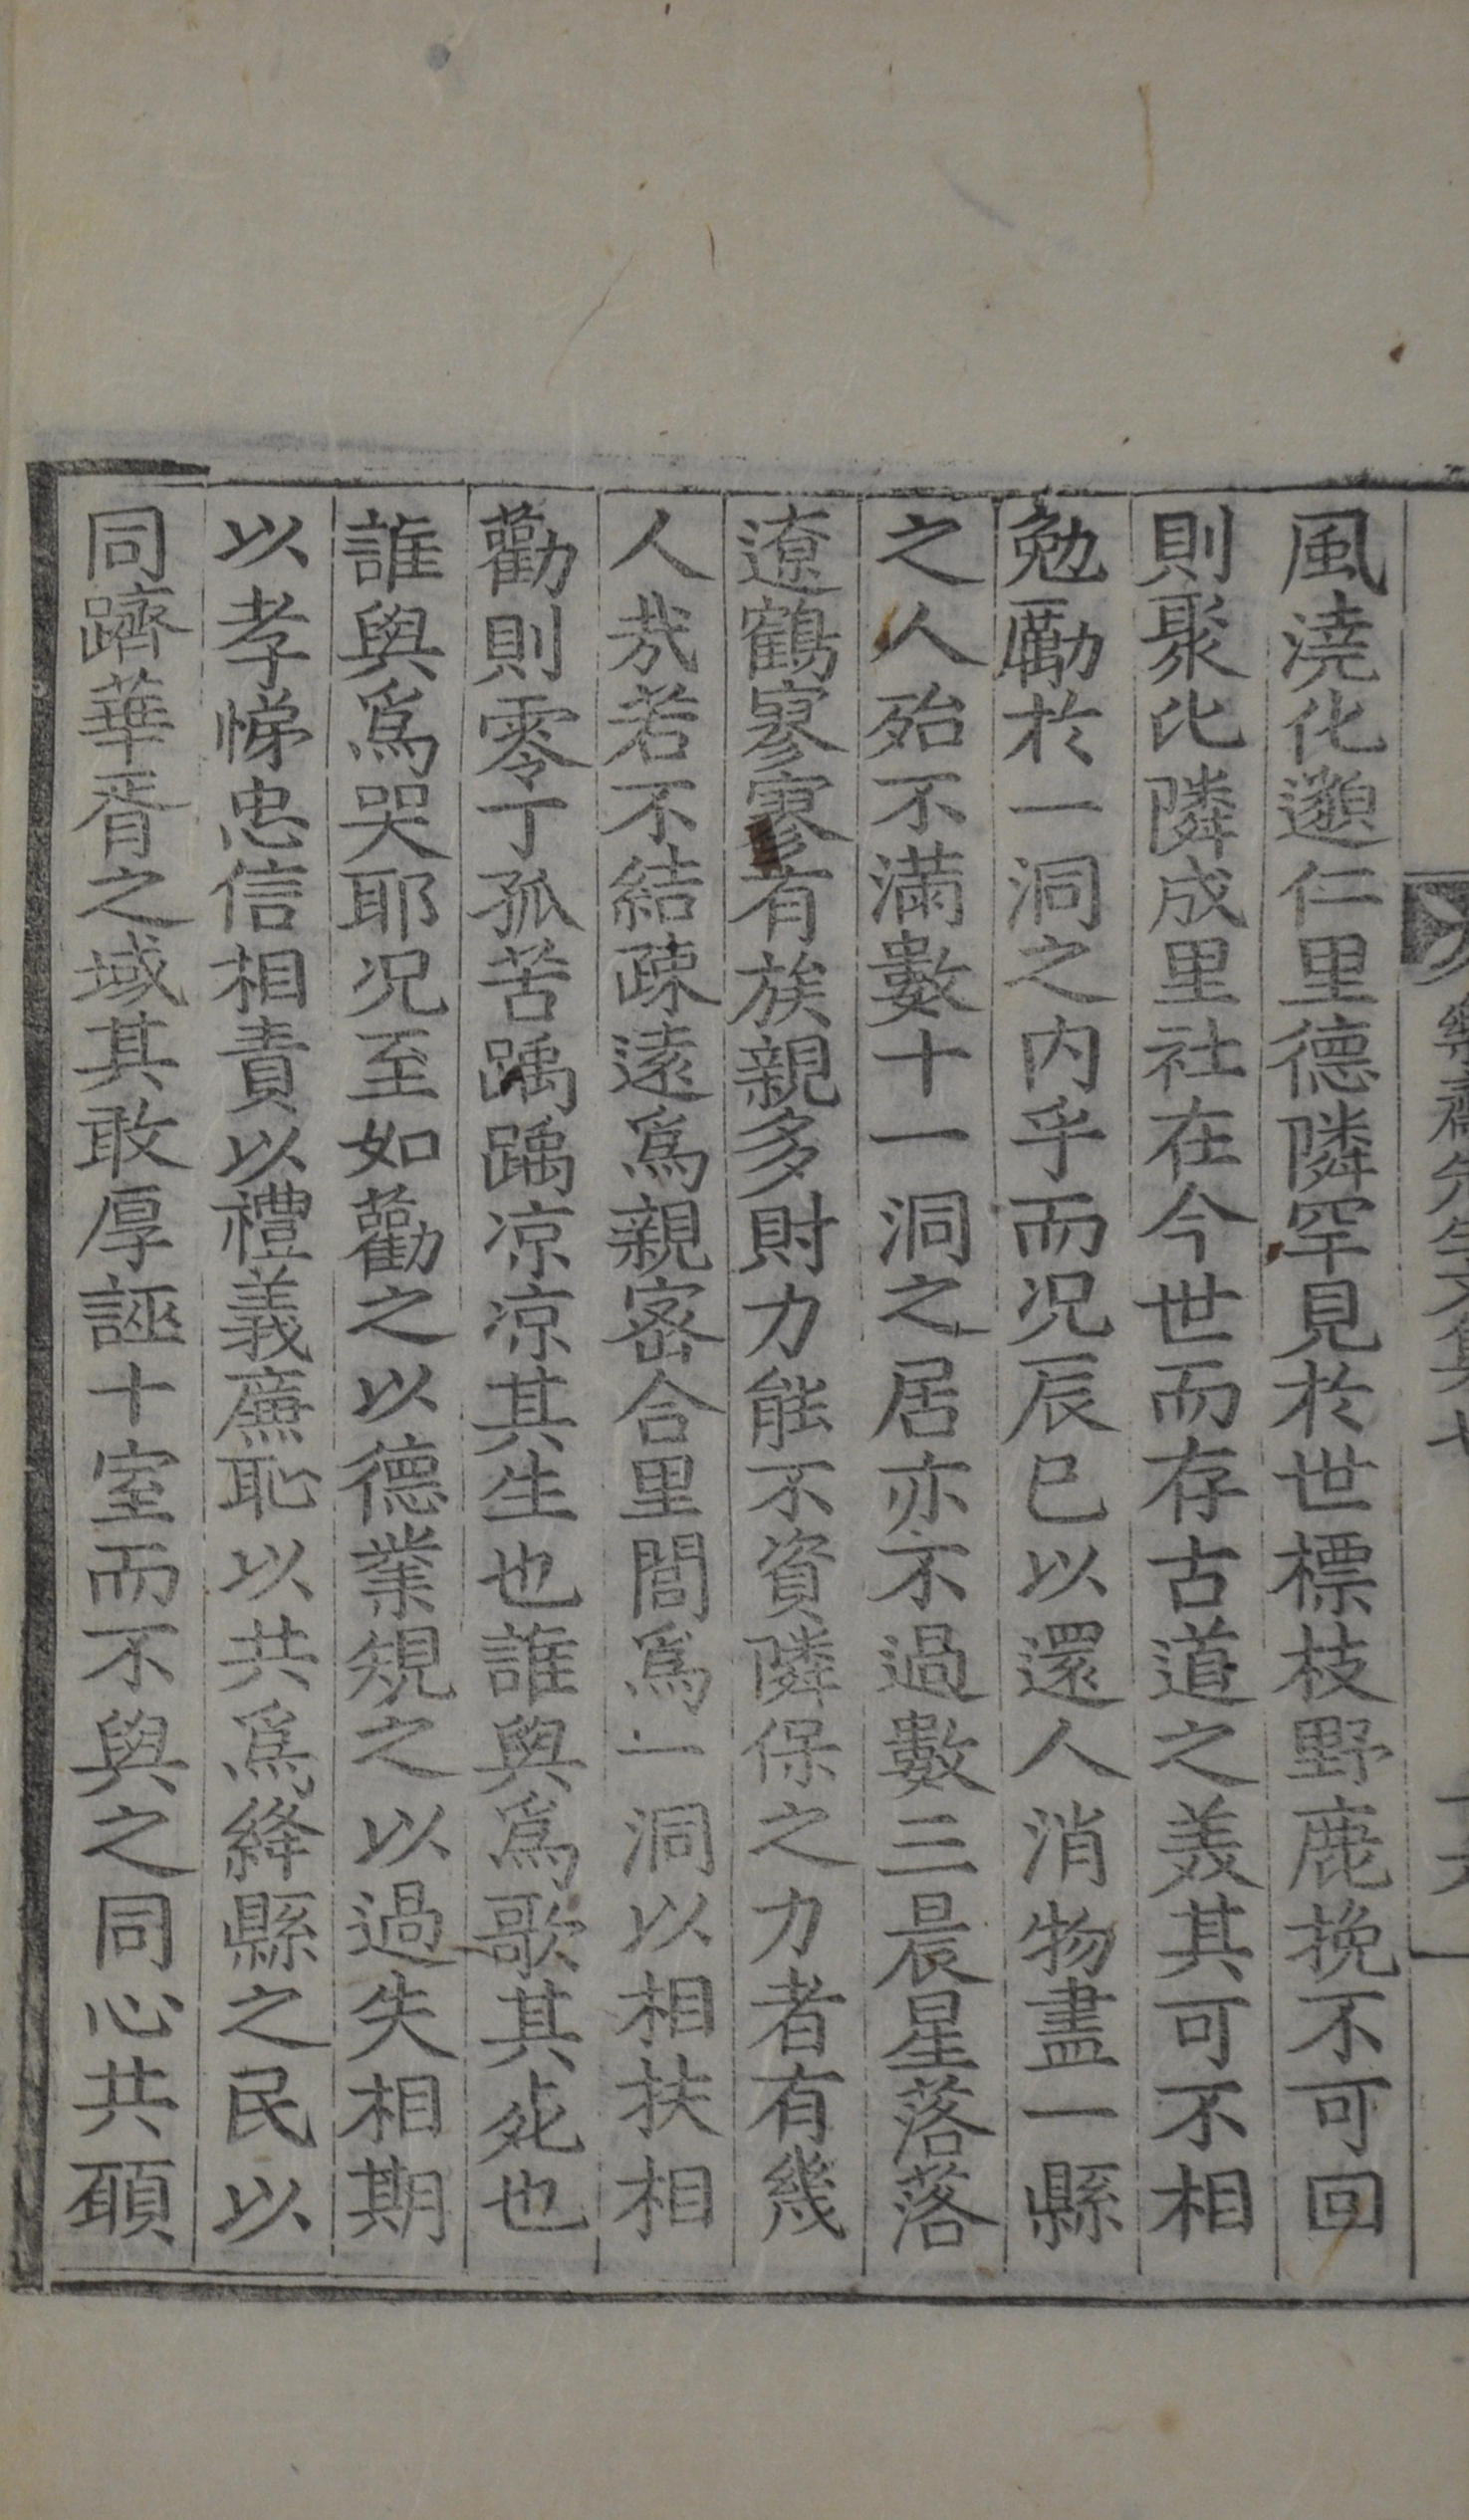 風澆化邈仁里德隣罕見於世標枝野鹿挽不可回
則聚比隣成里社在今世而存古道之美其可不相
勉勵於一洞之内乎而况辰巳以還人消物盡一縣
之人殆不滿數十一洞之居亦不過數三晨星落落
遼鶴寥寥有族親多財力能不資隣保之力者有幾
人㦲若不結疎遠爲親密合里閭爲一洞以相扶相
勸則零丁孤苦踽踽凉凉其生也誰與爲歌其死也
誰與爲哭耶况至如勸之以德業規之以過失相期
以孝悌忠信相責以禮義廉恥以共爲絳縣之民以
同躋華胥之域其敢厚誣十室而不與之同心共願
先生文集